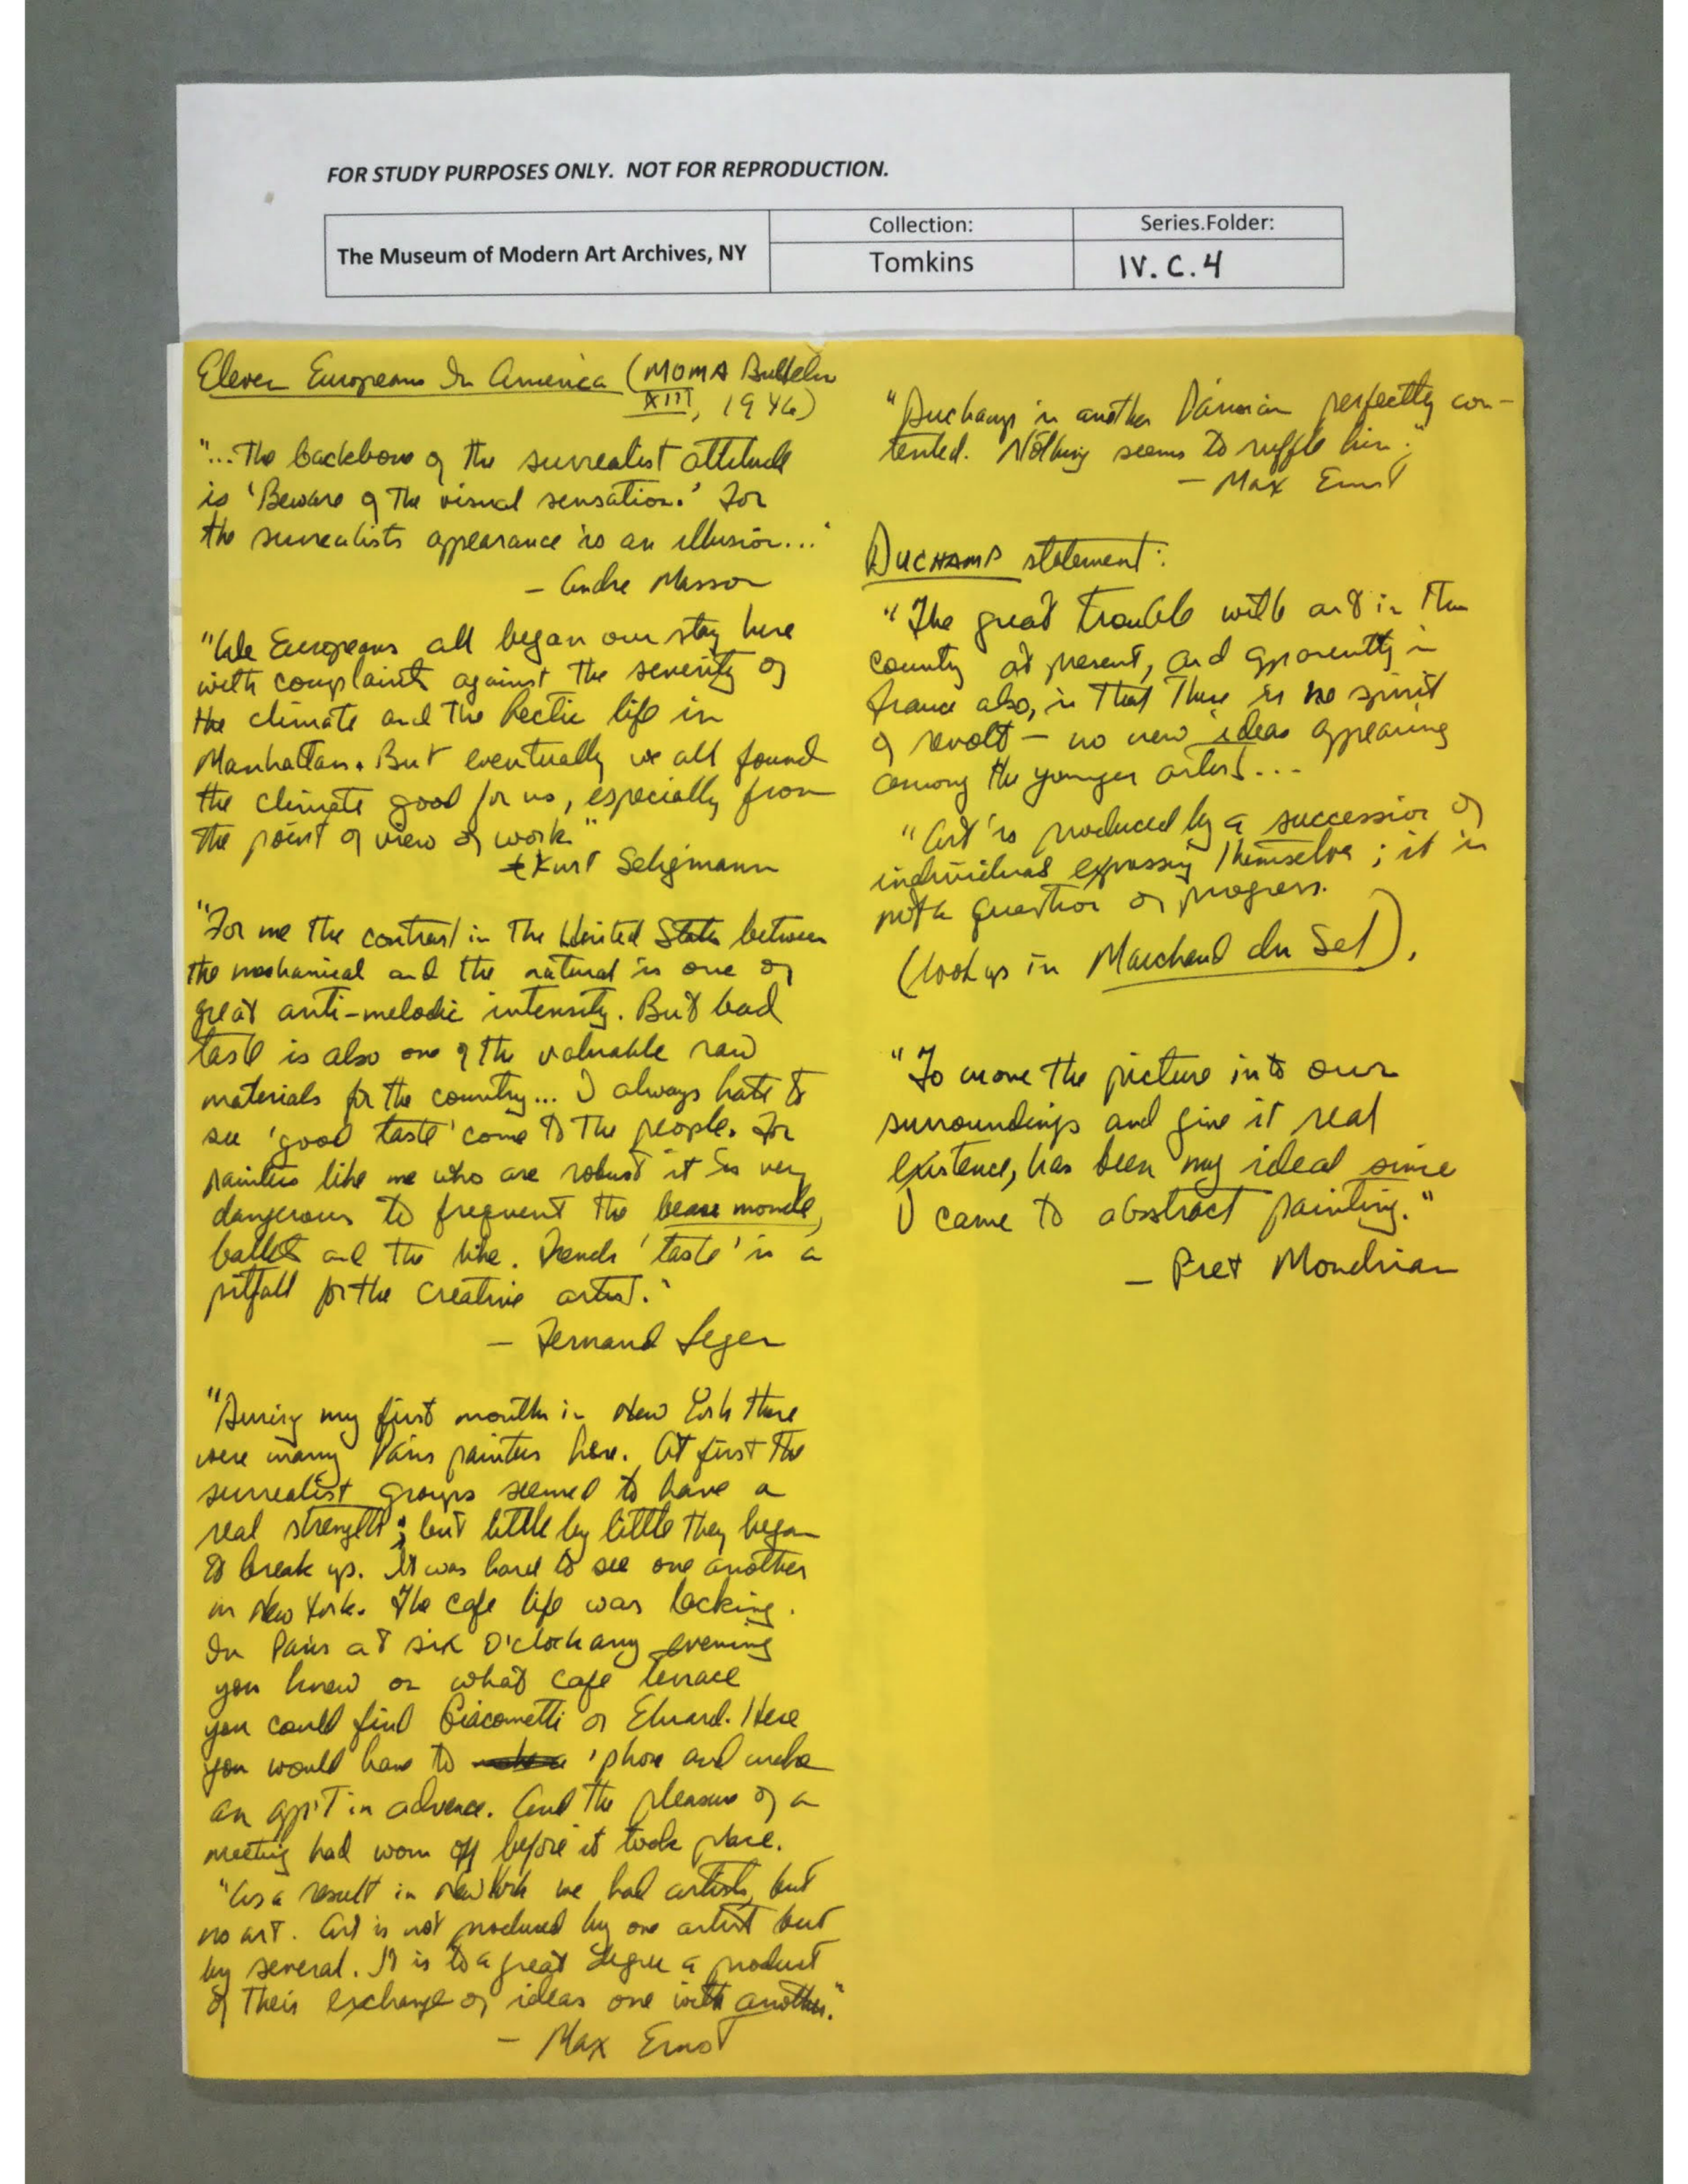 FOR STUDY PURPOSES ONLY. NOT FOR REPRODUCTION.
The Museum of Modern Art Archives, NY
Collection:
Tomkins
Series.Folder:
IV.C.4
Eleven Europeans In America (MOMA Bulletin
XIII, 1946)
"...The backbone of the surrealist attitude
is 'Beware of the visual sensation.' For
the surrealists appearance is an illusion..."
- Andre Masson
"We Europeans all began our stay here
with complaints against the severity of
the climate and the hectic life in
Manhattan. But eventually we all found
the climate good for us, especially from
the point of view of work."
- Kurt Seligmann
"For me the contrast in the United States between
the mechanical and the natural is one of
great anti-melodic intensity. But bad
taste is also one of the valuable raw
materials for the country... I always hate to
see 'good taste' come to the people. For
painters like me who are robust it is very
dangerous to frequent the beau monde,
ballet and the like. French 'taste' is a
pitfall for the creative artist."
- Fernand Leger
"During my first months in New York there
were many Paris painters here. At first the
surrealist groups seemed to have a
real strength; but little by little they began
to break up. It was hard to see one another
in New York. The cafe life was lacking.
In Paris at six o'clock any evening
you knew on what cafe terrace
you could find Giacometti or Eluard. Here
you would have to 'phone and make
an app't in advance. And the pleasure of a
meeting had worn off before it took place.
"As a result in New York we had artists, but
no art. Art is not produced by one artist but
by several. It is to a great degree a product
of their exchange of ideas one with another."
- Max Ernst
"Duchamp is another Parisian perfectly con-
tented. Nothing seems to ruffle him."
- Max Ernst
DUCHAMP statement:
"The great trouble with art in this
country at present, and apparently in
France also, is that there is no spirit
of revolt - no new ideas appearing
among the younger artists...
"Art is produced by a succession of
individuals expressing themselves; it is
not a question of progress.
(look up in Marchand du Sel).
"To move the picture into our
surroundings and give it real
existence, has been my ideal since
I came to abstract painting."
- Piet Mondrian